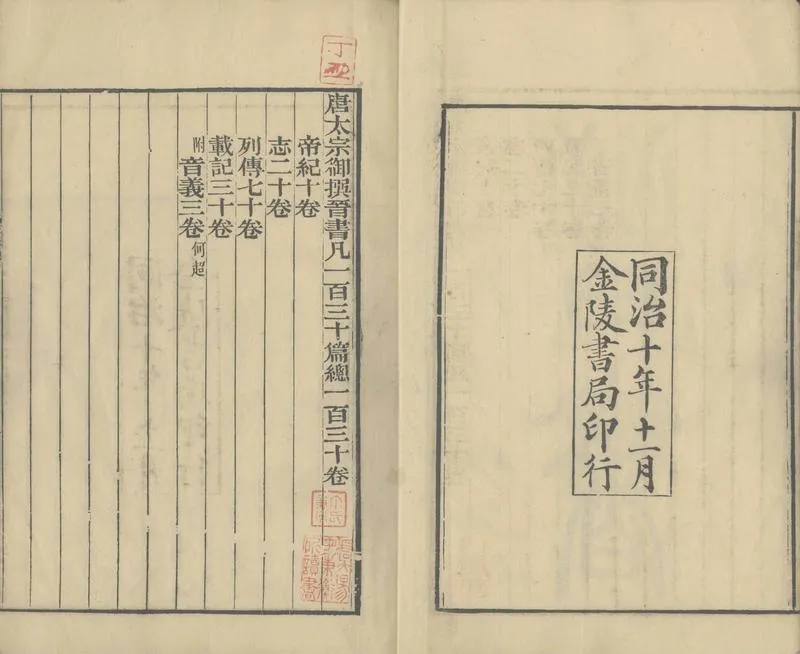 同治十年十一月
金陵書局印行
唐太宗御撰晉書凡一百三十篇總一百三十卷
帝紀十卷
志二十卷
列傳七十卷
載記三十卷
附音義三卷何超